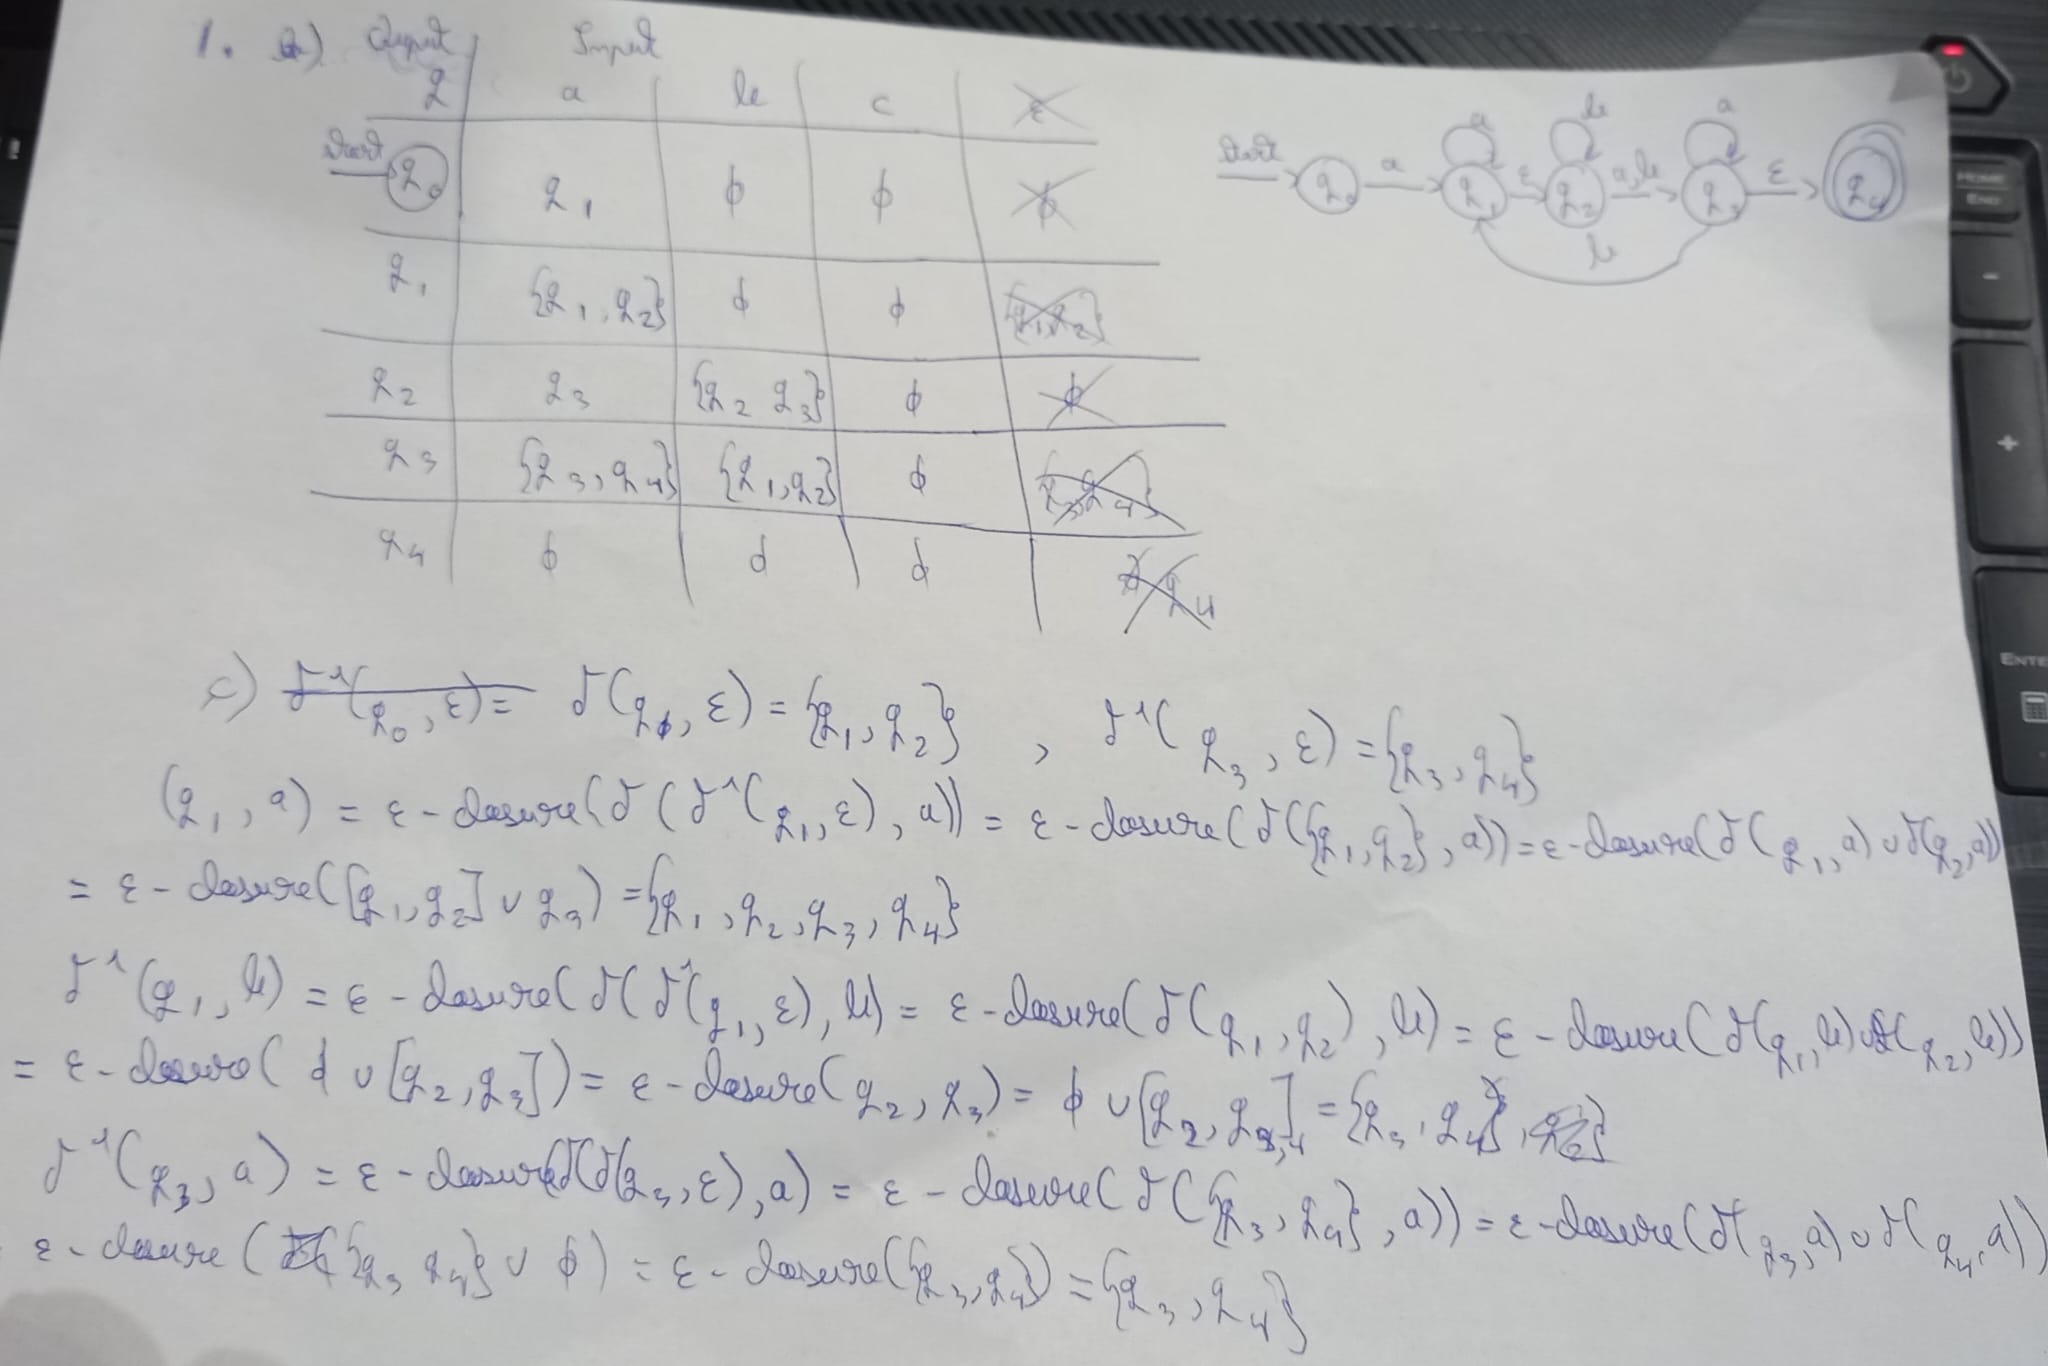 1. a) Output Input
q a b c ε
start q₀ q₁ ϕ ϕ ϕ
q₁ {q₁, q₂} ϕ ϕ {q₁, q₂}
q₂ q₃ {q₂ q₃} ϕ ϕ
q₃ {q₃, q₄} {q₁, q₂} ϕ {q₃, q₄}
q₄ ϕ ϕ ϕ q₄
start q₀ a q₁ a ε q₂ b a,b q₃ a ε q₄
b
c) δ^(q₀, ε) = δ(q₁, ε) = {q₁, q₂} , δ^(q₃, ε) = {q₃, q₄}
(q₁, a) = ε - closure(δ(δ^(q₁, ε), a)) = ε - closure(δ({q₁, q₂}, a)) = ε - closure(δ(q₁, a) ∪ δ(q₂, a))
= ε - closure([q₁, q₂] ∪ q₃) = {q₁, q₂, q₃, q₄}
δ^(q₁, b) = ε - closure(δ(δ^(q₁, ε), b) = ε - closure(δ(q₁, q₂), b) = ε - closure(δ(q₁, b) ∪ δ(q₂, b))
= ε - closure(ϕ ∪ [q₂, q₃]) = ε - closure(q₂, q₃) = ϕ ∪ [q₂, q₃,₄] = {q₃, q₄},
δ^(q₃, a) = ε - closure(δ(δ(q₃, ε), a) = ε - closure(δ({q₃, q₄}, a)) = ε - closure(δ(q₃, a) ∪ δ(q₄, a))
ε - closure({q₃ q₄} ∪ ϕ) = ε - closure({q₃, q₄}) = {q₃, q₄}
HOME
END
-
+
ENTE